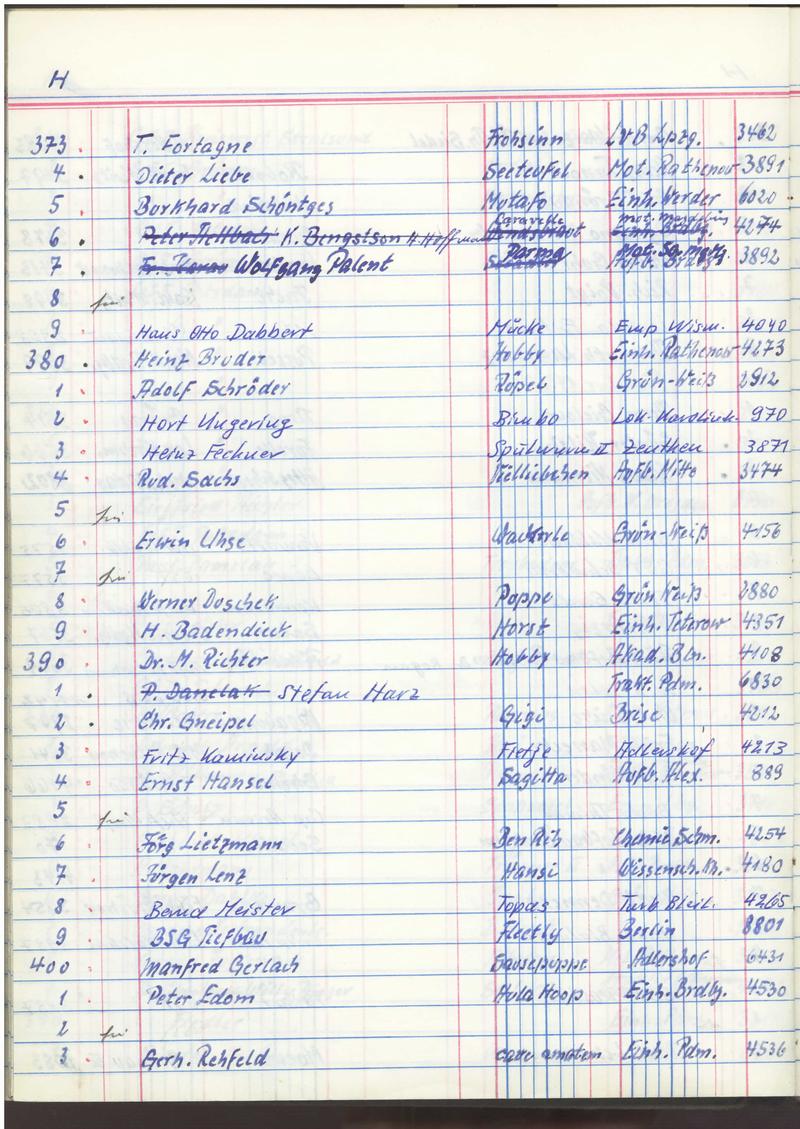 H
373. T. Fortagne Frohsinn LVB Lpzg. 3462
4. Dieter Liebe Seeteufel Mot. Rathenow 3891
5 Burkhard Schöntges Motafo Einh. Werder 6020
6. K. Bengstson H. Hoffmann Caravelle 4274
7. Wolfgang Palent Parma 3892
8 frei
9 Hans Otto Dabbert Mücke Emp Wism. 4040
380. Heinz Bruder Hobby Einh. Rathenow 4273
1 Adolf Schröder Röpel Grün-Weiß 2912
2 Hort Ungering Bimbo Lok. Karolinh. 970
3 Heinz Fechner Spulwurm II Zeuthen 3871
4 Rud. Sachs Aufb. Mitte 3474
5 frei
6 Erwin Uhse Grün-Weiß 4156
7 frei
8 Werner Duschek Poppe Grün Weiß 2880
9 H. Badendieck Horst Einh. Teterow 4351
390 Dr. M. Richter Hobby Akad. Bln. 4108
1. P. Danelak Stefan Harz Trakt. Pdm. 6830
2. Chr. Gneipel Gigi Brise 4212
3 Fritz Kaminsky Fietje Adlershof 4213
4 Ernst Hansel Sagitta Aufb. Alex. 889
5 frei
6 Jörg Lietzmann Ben Rih Chemie Schm. 4254
7 Jürgen Lenz Hansi Wissensch. 4180
8 Bernd Meister Topas Turb Bleil. 4265
9 BSG Tiefbau Fleetly Berlin 8801
400 Manfred Gerlach Sausepuppe Adlershof 6431
1 Peter Edom Hula Hoop Einh. Brdbg. 4530
2 frei
3 Gerh. Rehfeld Einh. Pdm. 4536